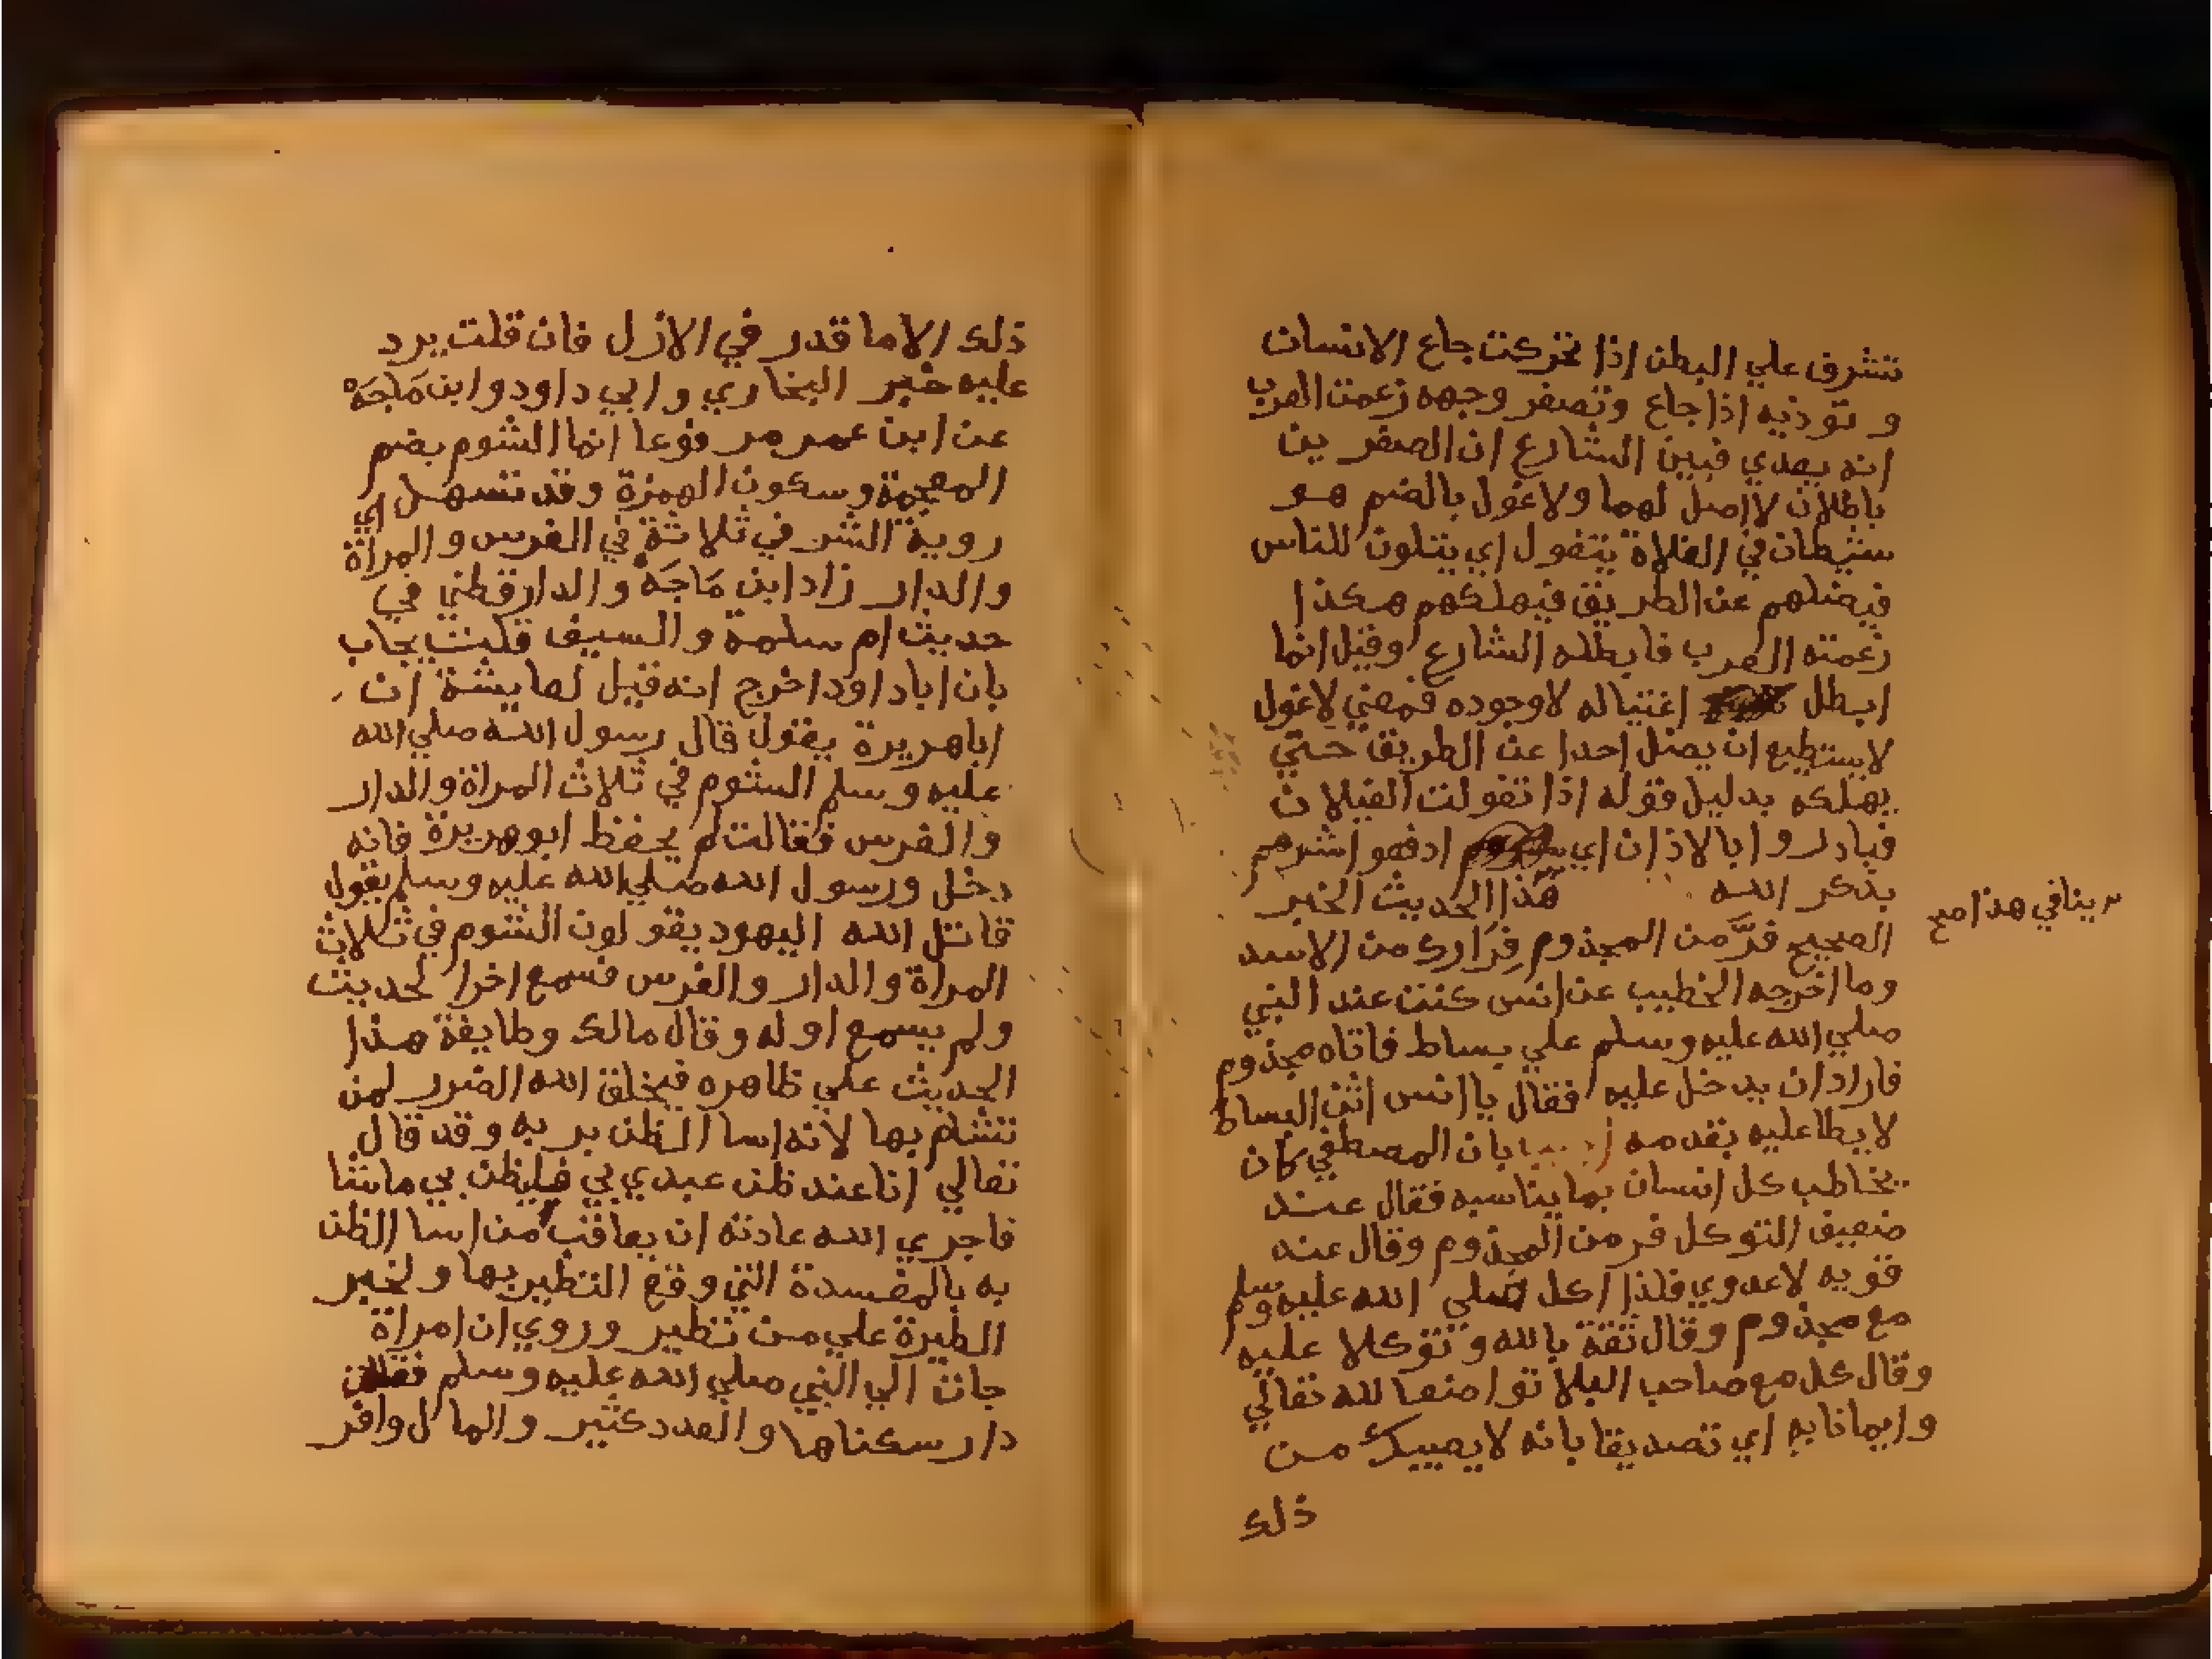 تشرف علي البطن اذا تحركت جاع الانسان
و توذيه اذا جاع وتصفر وجهه زعمت العرب
انه يعدي فبين الشارع ان الصفرين
باطلان لا اصل لهما ولا غول بالضم هو
شيطان في الفلاة يتغول اي يتلون للناس
فيضلهم عن الطريق فيهلكهم هكذا
زعمته العرب فابطله الشارع وقيل انما
ابطل اغتياله لا وجوده فمعني لا غول
لا يستطيع ان يضل احدا عن الطريق حتي
يهلكه بدليل قوله اذا تغولت الغيلان
فبادروا بالاذان اي ادفعوا شرهم
بذكر الله هذا الحديث الخبر
ينافي هذا مع
الصحيح فرَّ من المجذوم فِرَارك من الاسد
وما اخرجه الخطيب عن انس كنت عند النبي
صلي الله عليه وسلم علي بساط فاتاه مجذوم
فاراد ان يدخل عليه فقال يا انس اثن البساط
لا يطا عليه بقدمه بان المصطفي كان
يخاطب كل انسان بما يناسبه فقال عند
ضعيف التوكل فر من المجذوم وقال عنه
قويه لا عدوي فلذا اكل صلي الله عليه وسلم
مع مجذوم وقال ثقة بالله و توكلا عليه
وقال كل مع صاحب البلا تواضعا لله تعالي
وايمانا به اي تصديقا بانه لا يصيبك من
ذلك
ذلك الا ما قدر في الازل فان قلت يرد
عليه خبر البخاري و ابي داود و ابن مَاجَهْ
عن ابن عمر مرفوعا انما الشوم بضم
المعجمة وسكون الهمزة وقد تسهل اي
روية الشر في ثلاثة في الفرس و المراة
والدار زاد ابن مَاجَهْ والدارقطني في
حديث ام سلمة والسيف قلت يجاب
بان ابا داود اخرج انه قيل لعايشة ان
ابا هريرة يقول قال رسول الله صلي الله
عليه وسلم الشوم في ثلاث المراة والدار
والفرس فقالت لم يحفظ ابو هريرة فانه
دخل ورسول الله صلي الله عليه وسلم يقول
قاتل الله اليهود يقولون الشوم في ثلاث
المراة والدار والفرس فسمع اخر الحديث
ولم يسمع اوله وقال مالك وطايفة هذا
الحديث علي ظاهره فيخلق الله الضرر لمن
تشام بها لانه اسا الظن بربه وقد قال
تعالي انا عند ظن عبدي بي فليظن بي ماشا
فاجري الله عادته ان يعاقب من اسا الظن
به بالمفسدة التي وقع التطير بها ولخبر
الطيرة علي من تطير وروي ان امراة
جات الي النبي صلي الله عليه وسلم فقالت
دار سكناها والعدد كثير والمال وافر